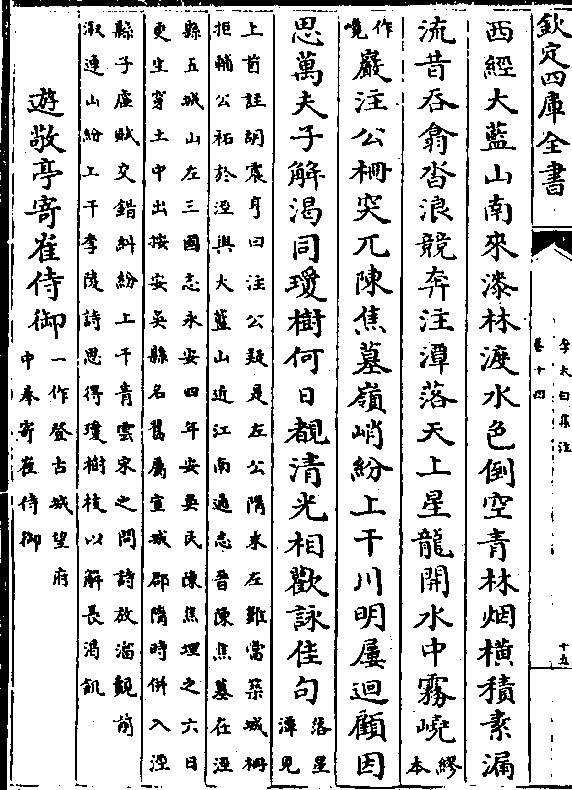 欽定四庫全書
李太白集注
卷十四
十五
西經大藍山南來漆林渡水色倒空青林烟橫積素漏
流昔吞翕沓浪競奔注潭落天上星龍開水中霧嶢繆本
作嶤巖注公柵突兀陳焦墓嶺峭紛上干川明屢迴顧因
思萬夫子解渴同瓊樹何日覩清光相歡詠佳句落星潭見
上首註胡震亨曰注公疑是左公隋末左難當築城柵
拒輔公祏於涇與大藍山近江南通志晉陳焦墓在涇
縣五城山左三國志永安四年安吳民陳焦埋之六日
更生穿土中出按安吳縣名舊屬宣城郡隋時併入涇
縣子虛賦交錯糾紛上干青雲宋之問詩放溜觀前
溆連山紛上干李陵詩思得瓊樹枝以解長渴飢
遊敬亭寄崔侍御一作登古城望府中奉寄崔侍御